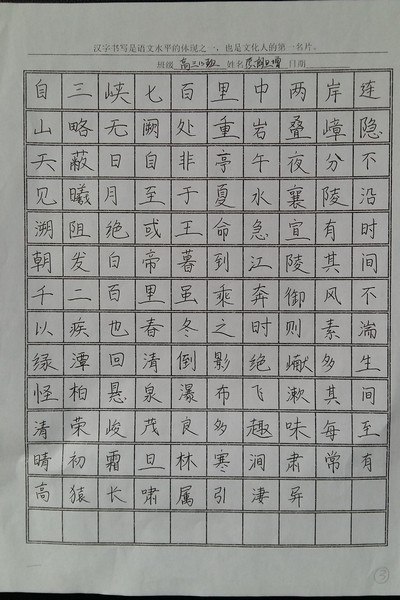 汉字书写是语文水平的体现之一，也是文化人的第一名片。
班级 姓名 日期
自三峡七百里中两岸连
山略无阙处重岩叠嶂隐
天蔽日自非亭午夜分不
见曦月至于夏水襄陵沿
溯阻绝或王命急宣有时
朝发白帝暮到江陵其间
千二百里虽乘奔御风不
以疾也春冬之时则素湍
绿潭回清倒影绝巘多生
怪柏悬泉瀑布飞漱其间
清荣峻茂良多趣味每至
晴初霜旦林寒涧肃常有
高猿长啸属引凄异
③